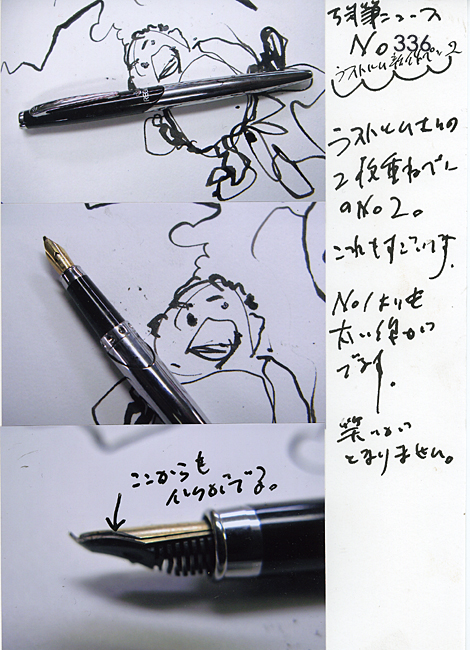 筆ニュース
No 336
ラストルム
ラストルムさんの
2枚重ねペン
のNo2。
これもすごいです。
No1よりも
太い線が
でます。
笑いが
とまりません。
ここからも
インクがでる。